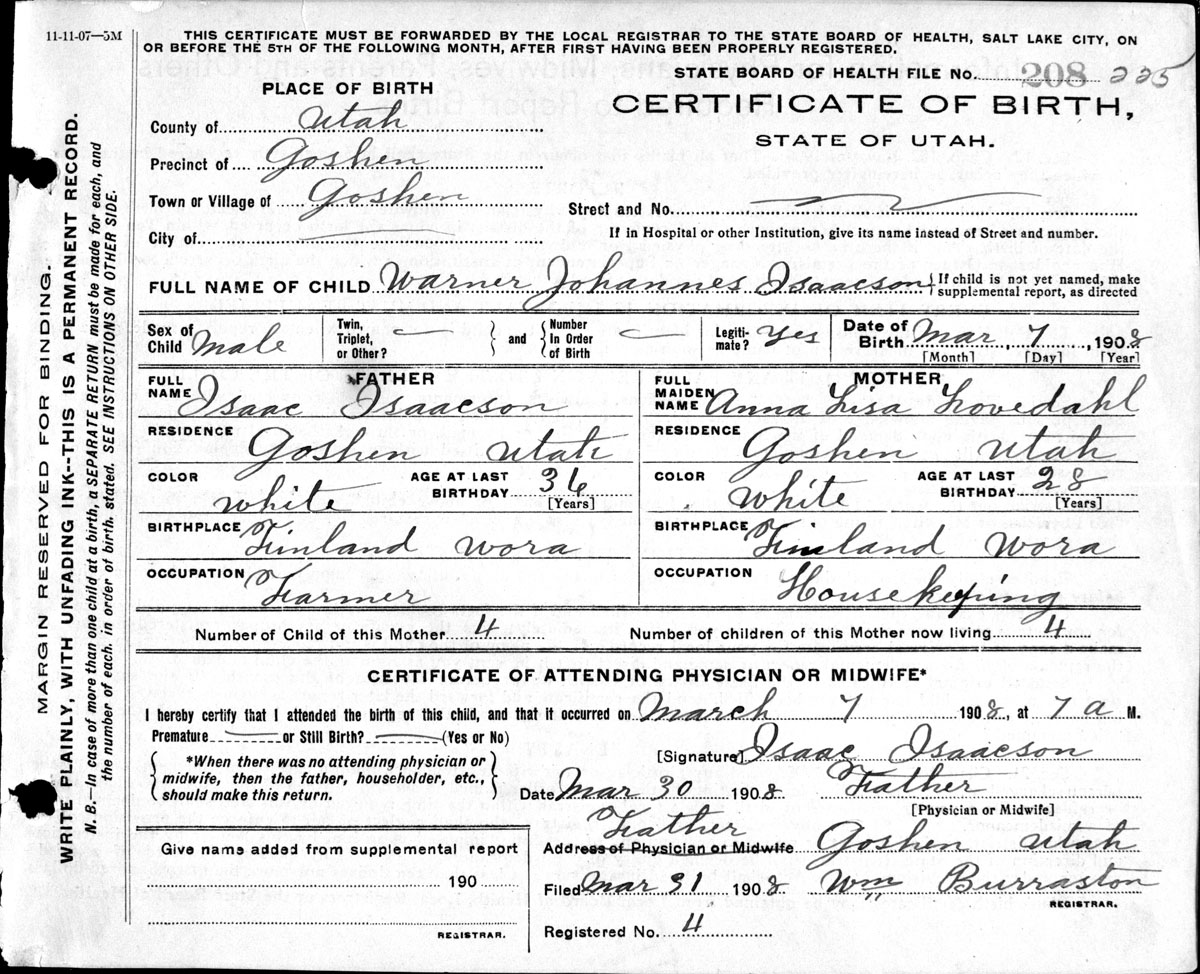 11-11-07—5M
THIS CERTIFICATE MUST BE FORWARDED BY THE LOCAL REGISTRAR TO THE STATE BOARD OF HEALTH, SALT LAKE CITY, ON
OR BEFORE THE 5TH OF THE FOLLOWING MONTH, AFTER FIRST HAVING BEEN PROPERLY REGISTERED.
STATE BOARD OF HEALTH FILE NO. 208 225
PLACE OF BIRTH
CERTIFICATE OF BIRTH,
STATE OF UTAH.
County of Utah
Precinct of Goshen
Town or Village of Goshen
Street and No.
City of
If in Hospital or other Institution, give its name instead of Street and number.
FULL NAME OF CHILD Warner Johannes Isaacson {If child is not yet named, make
supplemental report, as directed
Sex of Child Male
Twin, Triplet, or Other? — } and { Number In Order of Birth —
Legiti-mate? Yes
Date of Birth Mar 7, 1908
[Month] [Day] [Year]
FATHER
FULL NAME Isaac Isaacson
RESIDENCE Goshen Utah
COLOR white AGE AT LAST BIRTHDAY 36 [Years]
BIRTHPLACE Finland Wora
OCCUPATION Farmer
MOTHER
FULL MAIDEN NAME Anna Lisa Lovedahl
RESIDENCE Goshen Utah
COLOR White AGE AT LAST BIRTHDAY 28 [Years]
BIRTHPLACE Finland Wora
OCCUPATION Housekeeping
Number of Child of this Mother 4
Number of children of this Mother now living 4
CERTIFICATE OF ATTENDING PHYSICIAN OR MIDWIFE*
I hereby certify that I attended the birth of this child, and that it occurred on March 7 1908, at 7 a M.
Premature — or Still Birth? — (Yes or No)
*When there was no attending physician or
midwife, then the father, householder, etc.,
should make this return.
[Signature] Isaac Isaacson
Date Mar 30 1908 Father
[Physician or Midwife]
Father
Address of Physician or Midwife Goshen Utah
Filed Mar 31 1908 Wm Burraston
REGISTRAR.
Registered No. 4
Give name added from supplemental report
190
REGISTRAR.
MARGIN RESERVED FOR BINDING.
WRITE PLAINLY, WITH UNFADING INK--THIS IS A PERMANENT RECORD.
N. B.—In case of more than one child at a birth, a SEPARATE RETURN must be made for each, and
the number of each. in order of birth, stated. SEE INSTRUCTIONS ON OTHER SIDE.